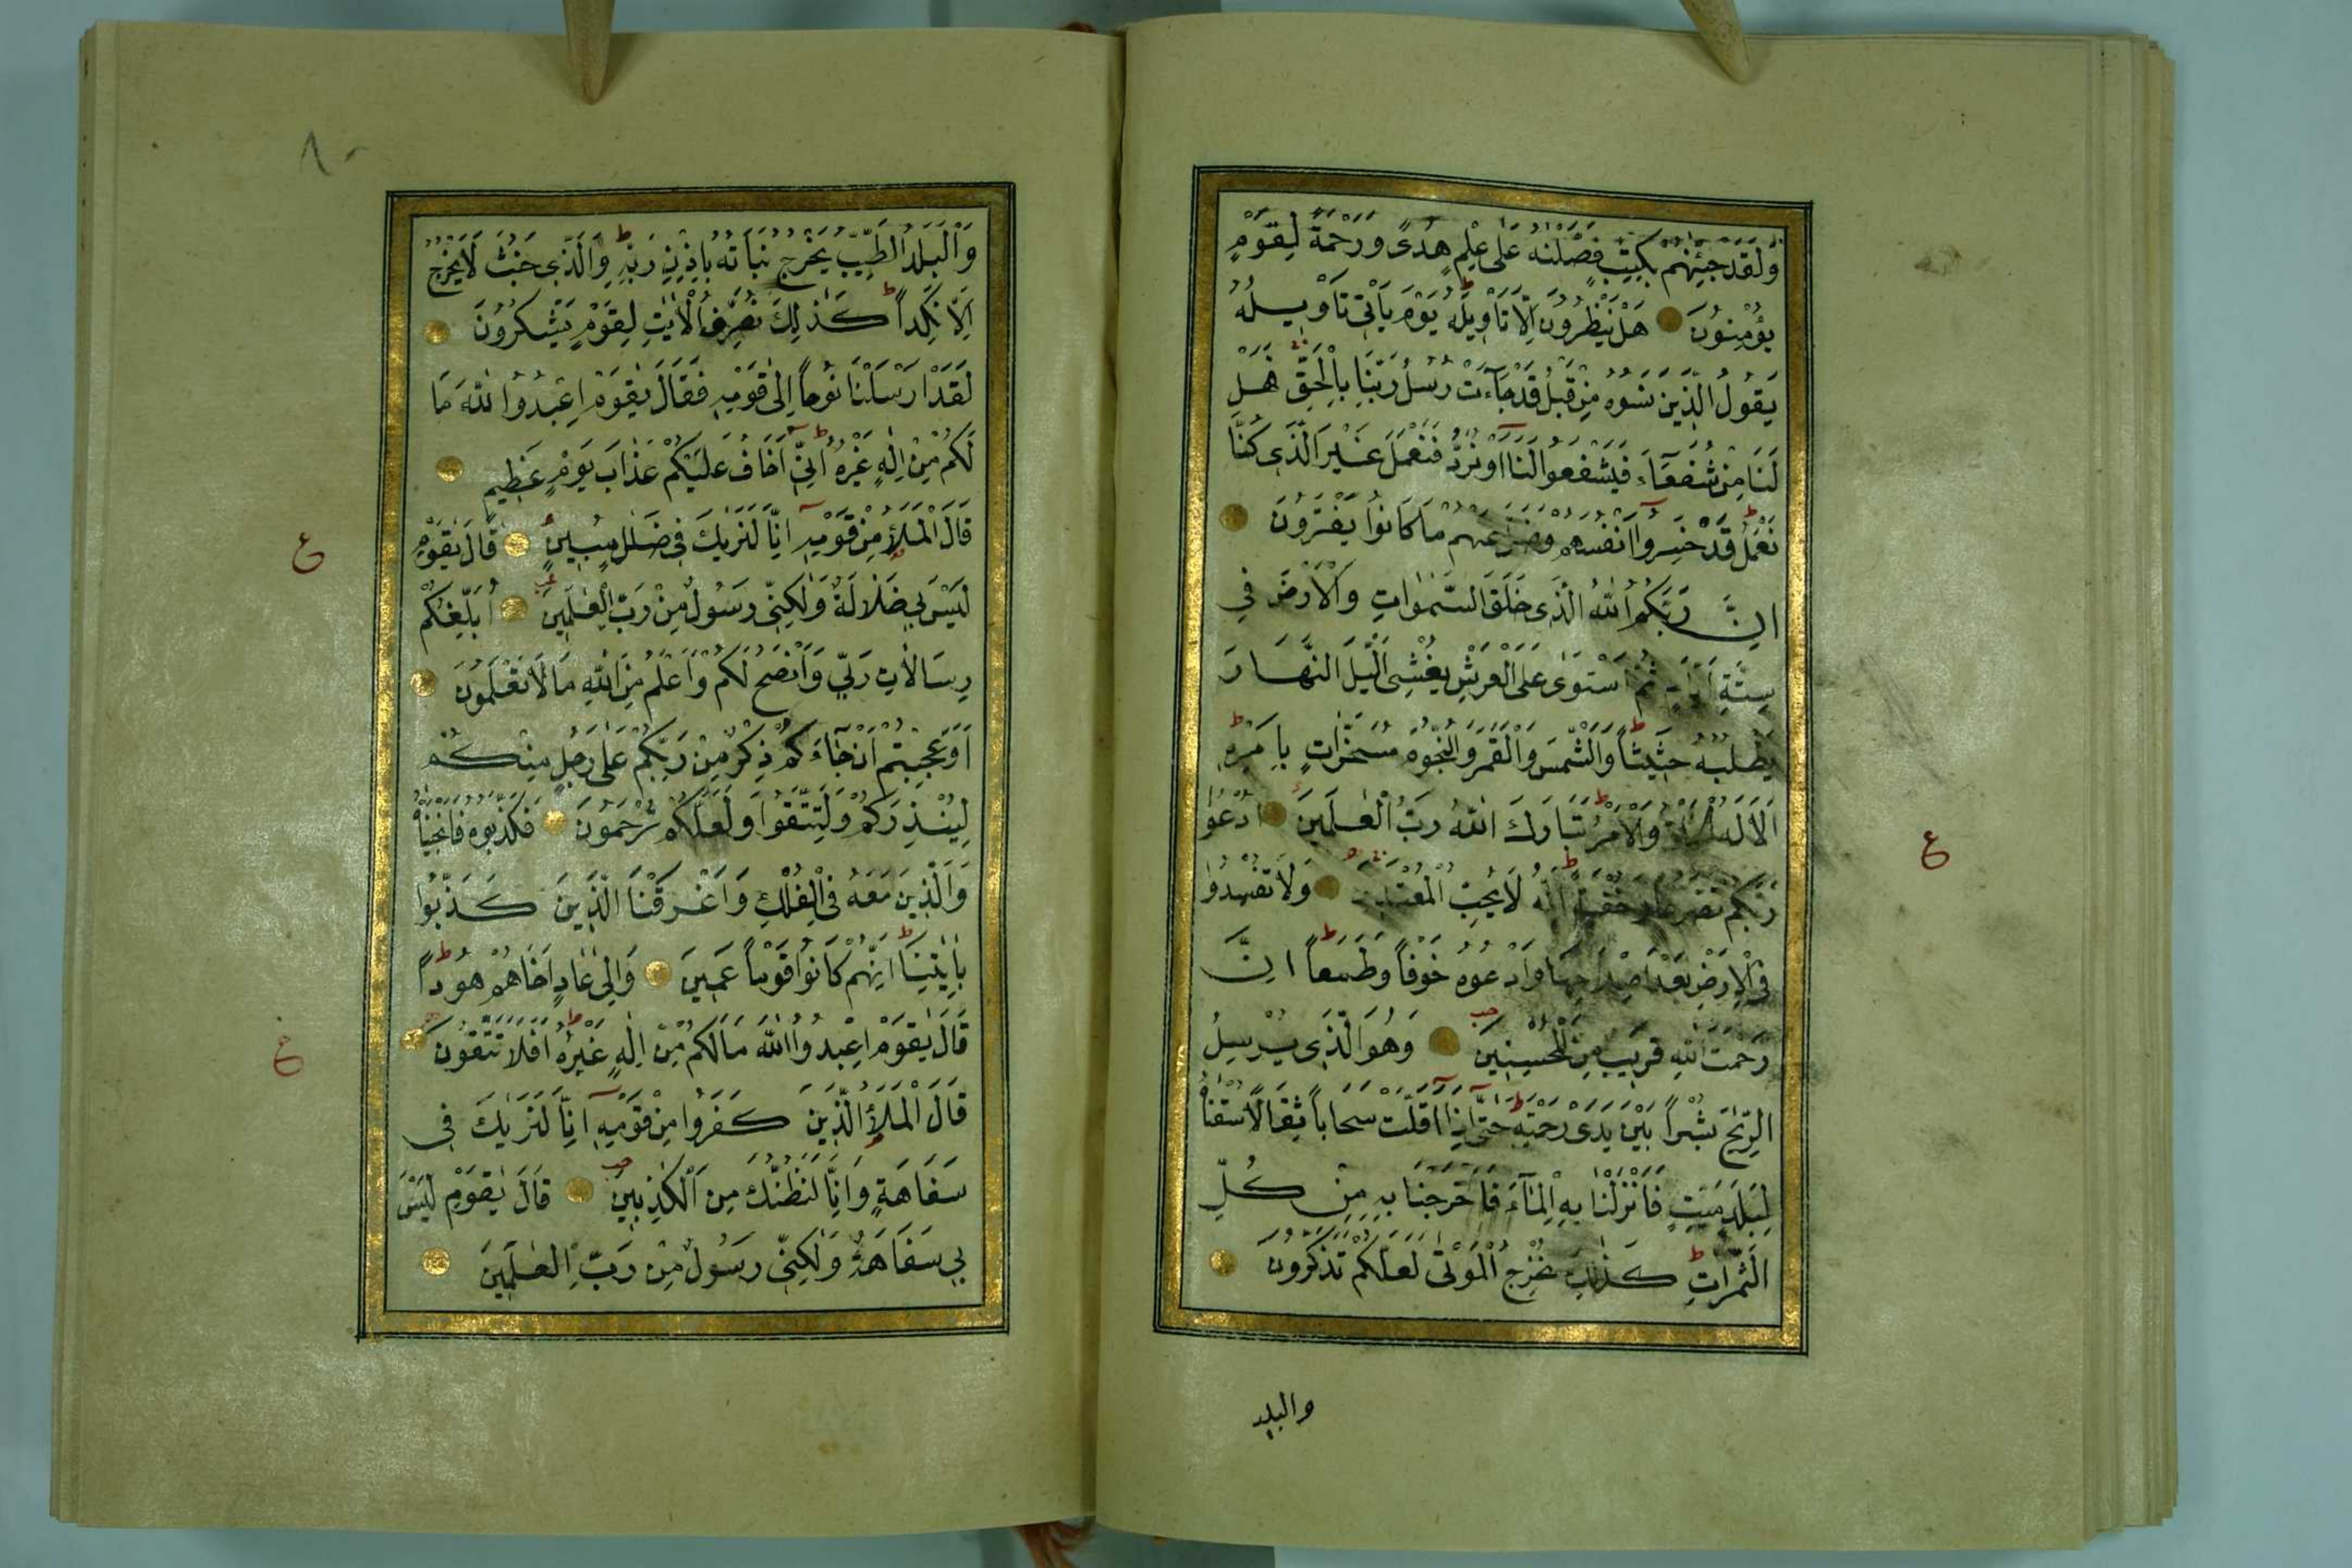 وَلَقَدْ جِئْنٰهُمْ بِكِتٰبٍ فَصَّلْنٰهُ عَلٰى عِلْمٍ هُدًى وَرَحْمَةً لِقَوْمٍ
يُؤْمِنُونَ هَلْ يَنْظُرُونَ اِلَّا تَأْوِيلَهُ يَوْمَ يَأْتِى تَأْوِيلُهُ
يَقُولُ الَّذِينَ نَسُوهُ مِنْ قَبْلُ قَدْ جَآءَتْ رُسُلُ رَبِّنَا بِالْحَقِّ فَهَلْ
لَنَا مِنْ شُفَعَآءَ فَيَشْفَعُوا لَنَا اَوْ نُرَدُّ فَنَعْمَلَ غَيْرَ الَّذِى كُنَّا
نَعْمَلُ قَدْ خَسِرُوا اَنْفُسَهُمْ وَضَلَّ عَنْهُمْ مَا كَانُوا يَفْتَرُونَ
اِنَّ رَبَّكُمُ اللّٰهُ الَّذِى خَلَقَ السَّمٰوَاتِ وَالْاَرْضَ فِى
سِتَّةِ اَيَّامٍ ثُمَّ اسْتَوٰى عَلَى الْعَرْشِ يُغْشِى الَّيْلَ النَّهَارَ
يَطْلُبُهُ حَثِيثًا وَالشَّمْسَ وَالْقَمَرَ وَالنُّجُومَ مُسَخَّرَاتٍ بِاَمْرِهِ
اَلَا لَهُ الْخَلْقُ وَالْاَمْرُ تَبَارَكَ اللّٰهُ رَبُّ الْعٰلَمِينَ اُدْعُوا
رَبَّكُمْ تَضَرُّعًا وَخُفْيَةً اِنَّهُ لَا يُحِبُّ الْمُعْتَدِينَ وَلَا تُفْسِدُوا
فِى الْاَرْضِ بَعْدَ اِصْلَاحِهَا وَادْعُوهُ خَوْفًا وَطَمَعًا اِنَّ
رَحْمَتَ اللّٰهِ قَرِيبٌ مِنَ الْمُحْسِنِينَ وَهُوَ الَّذِى يُرْسِلُ
الرِّيٰحَ بُشْرًا بَيْنَ يَدَىْ رَحْمَتِهِ حَتّٰى اِذَا اَقَلَّتْ سَحَابًا ثِقَالًا سُقْنَاهُ
لِبَلَدٍ مَيِّتٍ فَاَنْزَلْنَا بِهِ الْمَآءَ فَاَخْرَجْنَا بِهِ مِنْ كُلِّ
الثَّمَرَاتِ كَذٰلِكَ نُخْرِجُ الْمَوْتٰى لَعَلَّكُمْ تَذَكَّرُونَ
ع
والبلد
٨٠
وَالْبَلَدُ الطَّيِّبُ يَخْرُجُ نَبَاتُهُ بِاِذْنِ رَبِّهِ وَالَّذِى خَبُثَ لَا يَخْرُجُ
اِلَّا نَكِدًا كَذٰلِكَ نُصَرِّفُ الْاٰيٰتِ لِقَوْمٍ يَشْكُرُونَ
لَقَدْ اَرْسَلْنَا نُوحًا اِلٰى قَوْمِهِ فَقَالَ يٰقَوْمِ اعْبُدُوا اللّٰهَ مَا
لَكُمْ مِنْ اِلٰهٍ غَيْرُهُ اِنِّى اَخَافُ عَلَيْكُمْ عَذَابَ يَوْمٍ عَظِيمٍ
قَالَ الْمَلَأُ مِنْ قَوْمِهِ اِنَّا لَنَرٰيكَ فِى ضَلٰلٍ مُبِينٍ قَالَ يٰقَوْمِ
لَيْسَ بِى ضَلَالَةٌ وَلٰكِنِّى رَسُولٌ مِنْ رَبِّ الْعٰلَمِينَ اُبَلِّغُكُمْ
رِسَالَاتِ رَبِّى وَاَنْصَحُ لَكُمْ وَاَعْلَمُ مِنَ اللّٰهِ مَا لَا تَعْلَمُونَ
اَوَعَجِبْتُمْ اَنْ جَآءَكُمْ ذِكْرٌ مِنْ رَبِّكُمْ عَلٰى رَجُلٍ مِنْكُمْ
لِيُنْذِرَكُمْ وَلِتَتَّقُوا وَلَعَلَّكُمْ تُرْحَمُونَ فَكَذَّبُوهُ فَاَنْجَيْنَاهُ
وَالَّذِينَ مَعَهُ فِى الْفُلْكِ وَاَغْرَقْنَا الَّذِينَ كَذَّبُوا
بِاٰيٰتِنَا اِنَّهُمْ كَانُوا قَوْمًا عَمِينَ وَاِلٰى عَادٍ اَخَاهُمْ هُودًا
قَالَ يٰقَوْمِ اعْبُدُوا اللّٰهَ مَا لَكُمْ مِنْ اِلٰهٍ غَيْرُهُ اَفَلَا تَتَّقُونَ
قَالَ الْمَلَأُ الَّذِينَ كَفَرُوا مِنْ قَوْمِهِ اِنَّا لَنَرٰيكَ فِى
سَفَاهَةٍ وَاِنَّا لَنَظُنُّكَ مِنَ الْكٰذِبِينَ قَالَ يٰقَوْمِ لَيْسَ
بِى سَفَاهَةٌ وَلٰكِنِّى رَسُولٌ مِنْ رَبِّ الْعٰلَمِينَ
ع